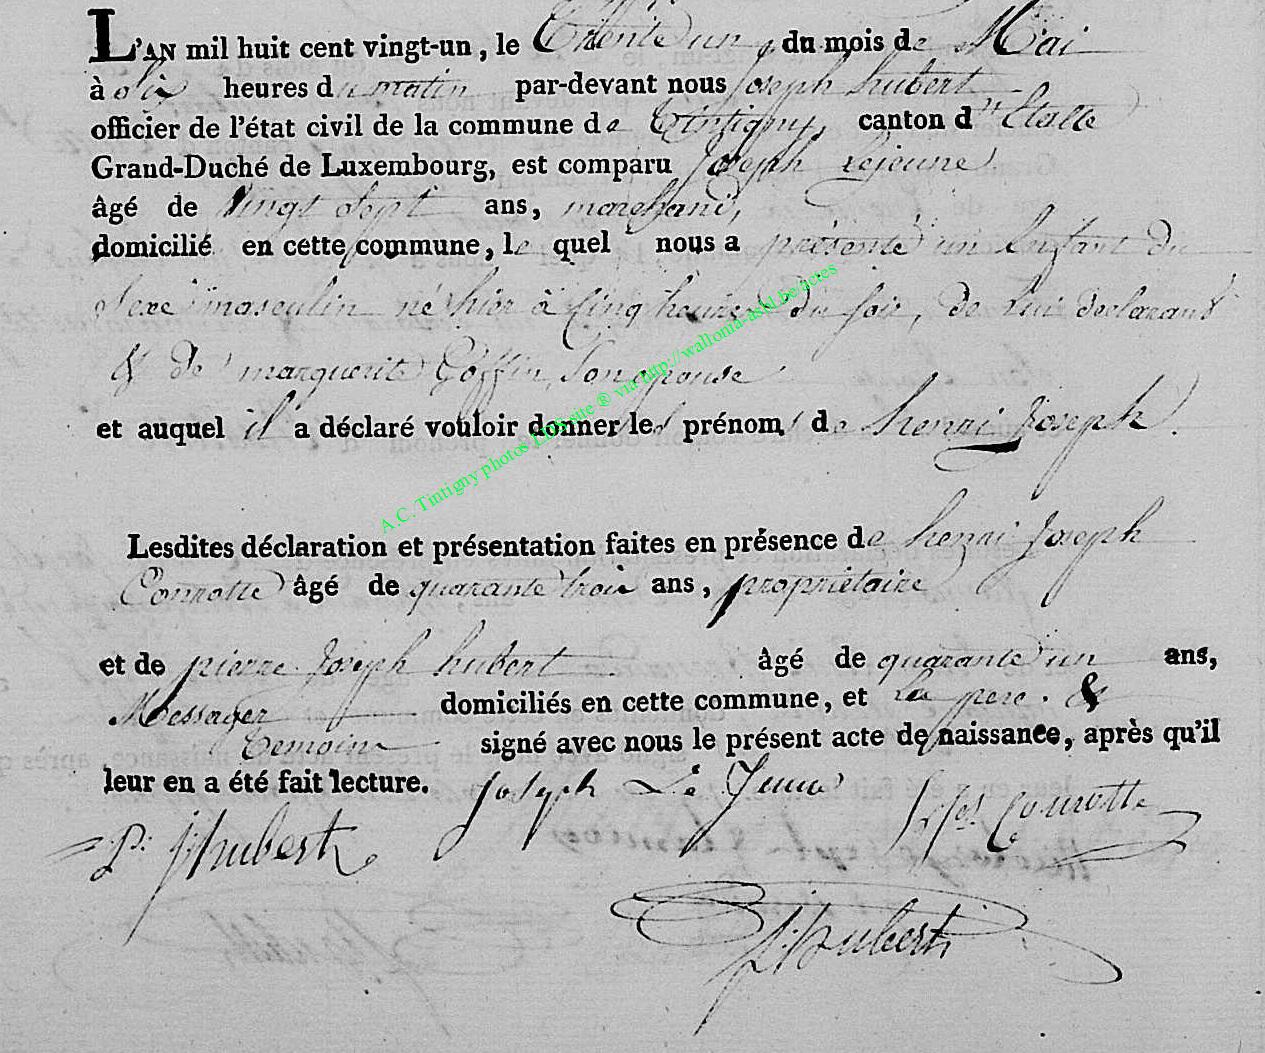 L'AN mil huit cent vingt-un, le Trente un, du mois de Mai
à dix heures du matin par-devant nous Joseph hubert
officier de l'état civil de la commune de Tintigny, canton d'Etalle
Grand-Duché de Luxembourg, est comparu Joseph Lejeune
âgé de vingt sept ans, marchand,
domicilié en cette commune, le quel nous a présenté un Enfant du
Sexe masculin né hier à Cinq heures du soir, de Lui déclarant
& de marguerite Goffin, Son epouse
et auquel il a déclaré vouloir donner les prénoms de henri Joseph.
A.C. Tintigny photos LUX site ® via http://wallonia-asbl.be/actes
Lesdites déclaration et présentation faites en présence de henri Joseph
Connotte âgé de quarante trois ans, propriétaire
et de pierre Joseph hubert âgé de quarante un ans,
Messager domiciliés en cette commune, et Le pere. &
temoins signé avec nous le présent acte de naissance, après qu'il
leur en a été fait lecture. Joseph Le Jeune
P. J. hubert
J. hubert